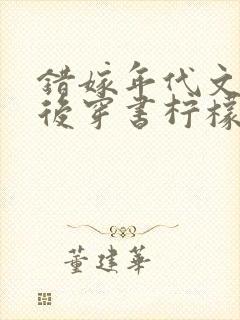 錯嫁年代文
後穿書柠檬
董建華